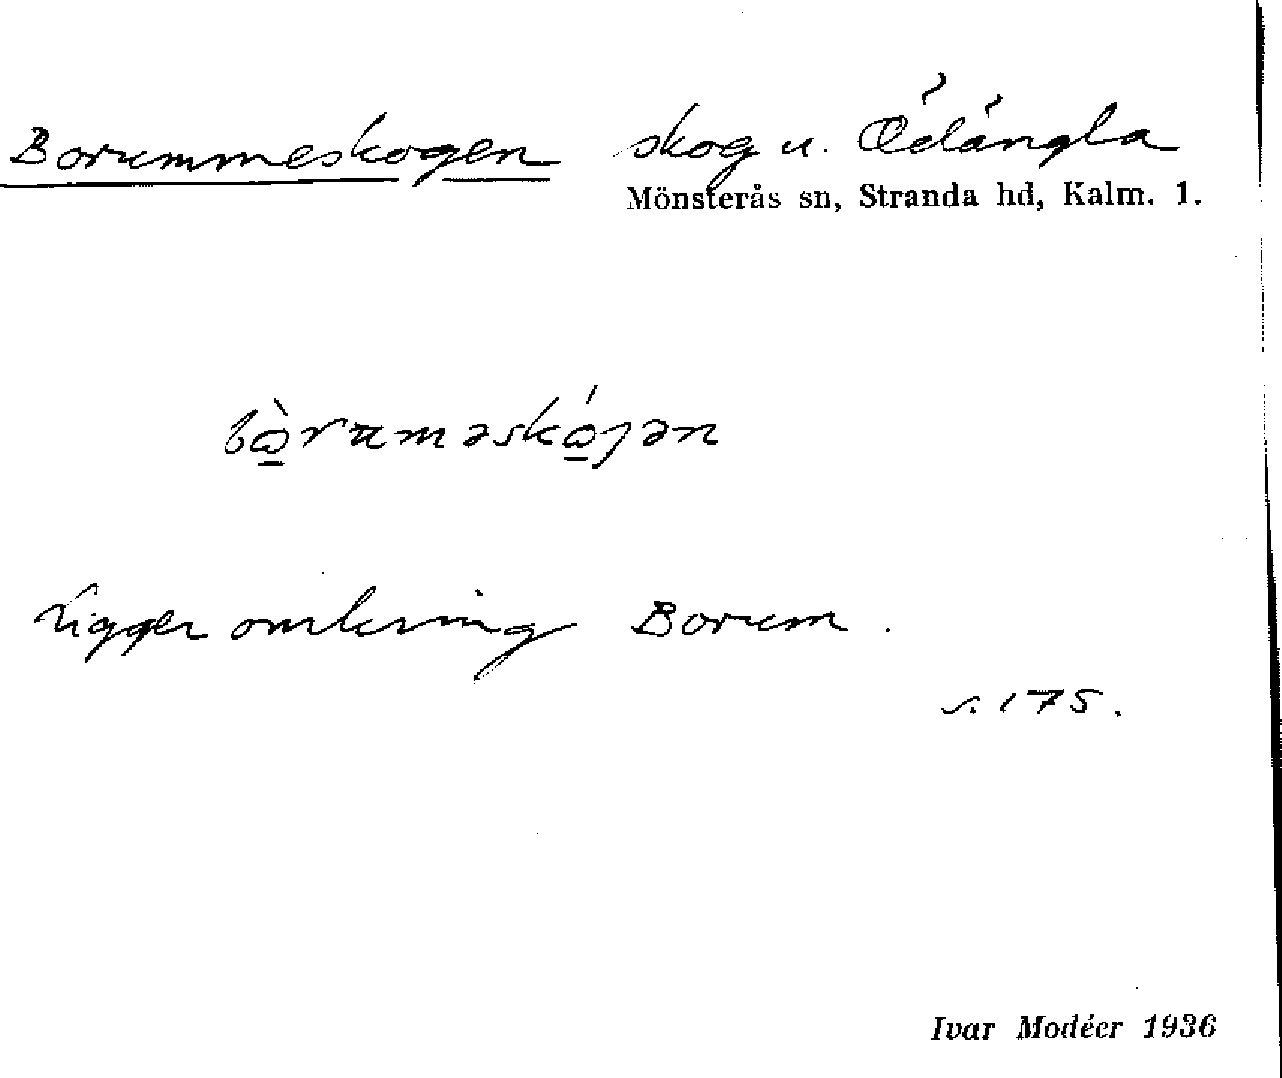 Borummeskogen skog u. Ödängla
Mönsterås sn, Stranda hd, Kalm. l.
bò̲ruməskó̲ȷən
Ligger omkring Borum.
s. 175.
Ivar Modéer 1936